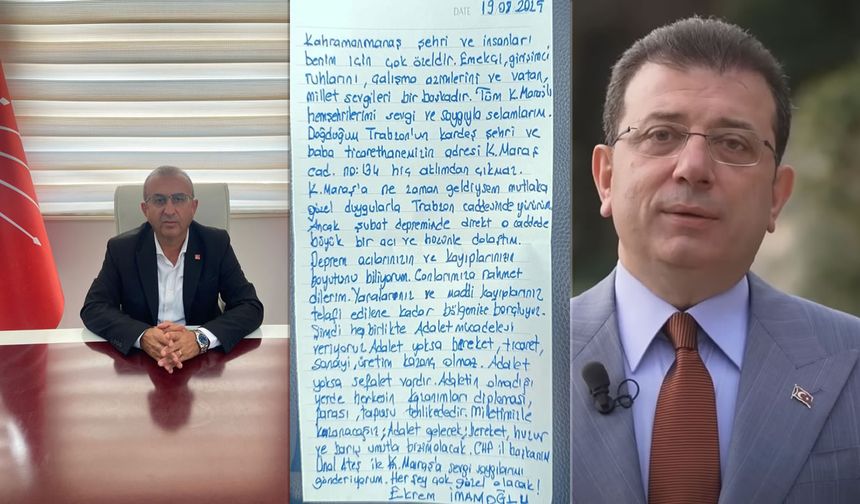 DATE 19.08.2025
Kahramanmaraş şehri ve insanları
benim için çok özeldir. Emekçi, girişimci
ruhlarını, çalışma azimlerini ve vatan,
millet sevgileri bir başkadır. Tüm K.Maraşlı
hemşehrilerimi sevgi ve saygıyla selamlarım.
Doğduğum Trabzon'un kardeş şehri ve
baba ticarethanemizin adresi K.Maraş
cad. no:134 hiç aklımdan çıkmaz.
K.Maraş'a ne zaman geldiysem mutlaka
güzel duygularla Trabzon caddesinde yürürüm.
Ancak şubat depreminde direkt o caddede
büyük bir acı ve hüzünle dolaştım.
Deprem acılarınızın ve kayıplarınızın
boyutunu biliyorum. Canlarımıza rahmet
dilerim. Yaralarımız ve maddi kayıplarınız
telafi edilene kadar bölgenize borçluyuz.
Şimdi hep birlikte Adalet mücadelesi
veriyoruz. Adalet yoksa bereket, ticaret,
sanayi, üretim kazanç olmaz. Adalet
yoksa sefalet vardır. Adaletin olmadığı
yerde herkesin kazanımları diploması,
parası, tapusu tehlikededir. Milletimizle
kazanacağız; Adalet gelecek; bereket, huzur
ve barış umutla bizim olacak. CHP il başkanım
Ünal Ateş ile K.Maraş'a sevgi saygılarımı
gönderiyorum. Her şey çok güzel olacak!
Ekrem İMAMOĞLU